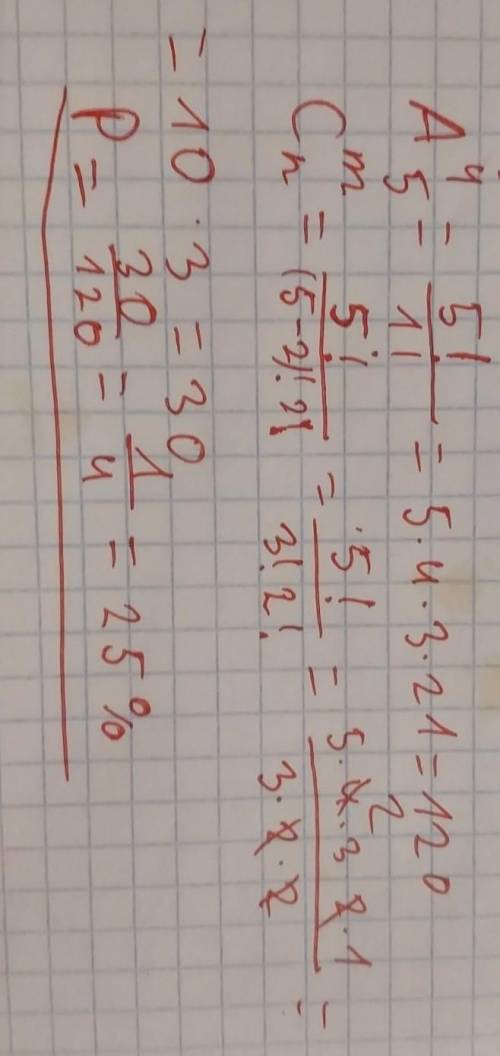 A⁴₅ = 5!/1! = 5·4·3·21 = 120
Cᵐₙ = 5!/(5-2)!2! = 5!/3!2! = 5·4²·3 2·1/3·2·2 =
= 10·3 = 30
P = 30/120 = 1/4 = 25%